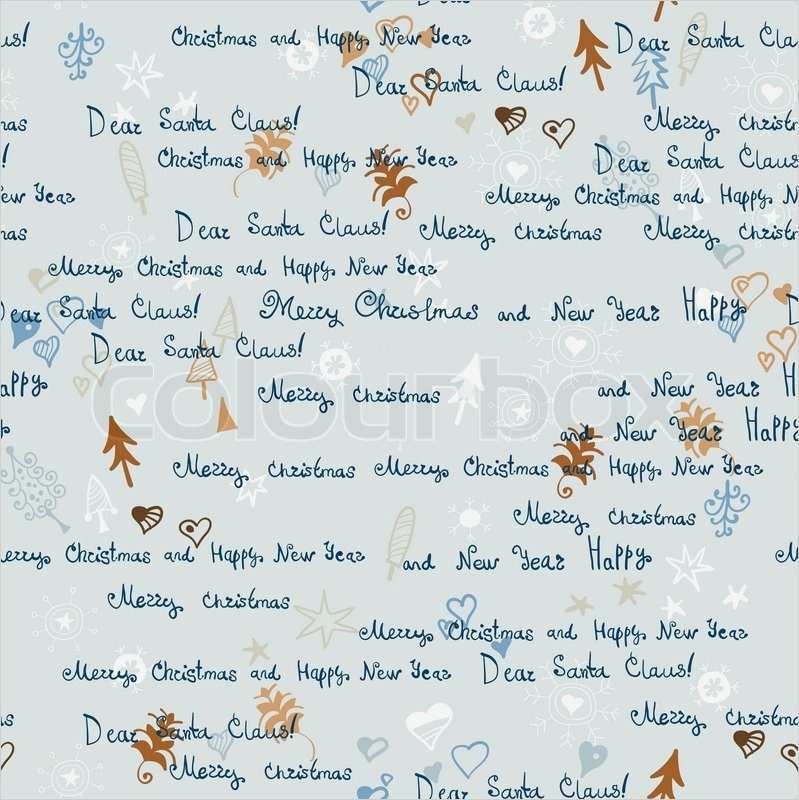 Dear Santa Claus!
us!
Christmas and Happy New Year
Dear Santa Cla
Dear Santa Claus!
mas
Dear Santa Claus!
Merry Christm
!
Christmas and Happy New Year
Dear Santa Claus
ew Year
Merry Christmas and Happy N
mas
Dear Santa Claus!
Merry Christmas
Merry Christm
Merry Christmas and Happy New Year
Dear Santa Claus!
Merry Christmas and New Year Happy
D
Dear Santa Claus!
appy
Merry Christmas
and New Year H
and New Year Happy
Merry Christmas
Merry Christmas and Happy New Year
Merry Christmas
erry Christmas and Happy New Year
and New Year Happy
M
Merry Christmas
Merry Christmas and Happy New Year
Merry Christmas and Happy New Year
Dear Santa Claus!
s
Merry Christma
Dear Santa Claus!
Merry Christmas
Dear Santa Claus!
colourbox